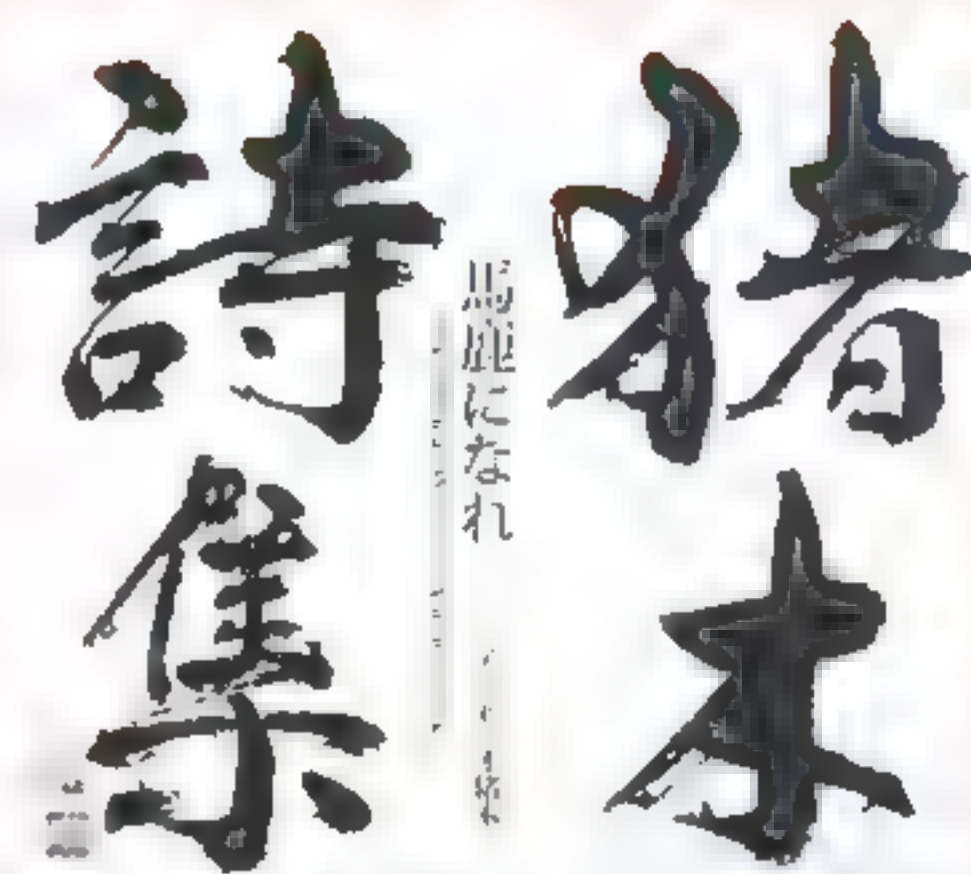 猪木
馬鹿になれ
詩集